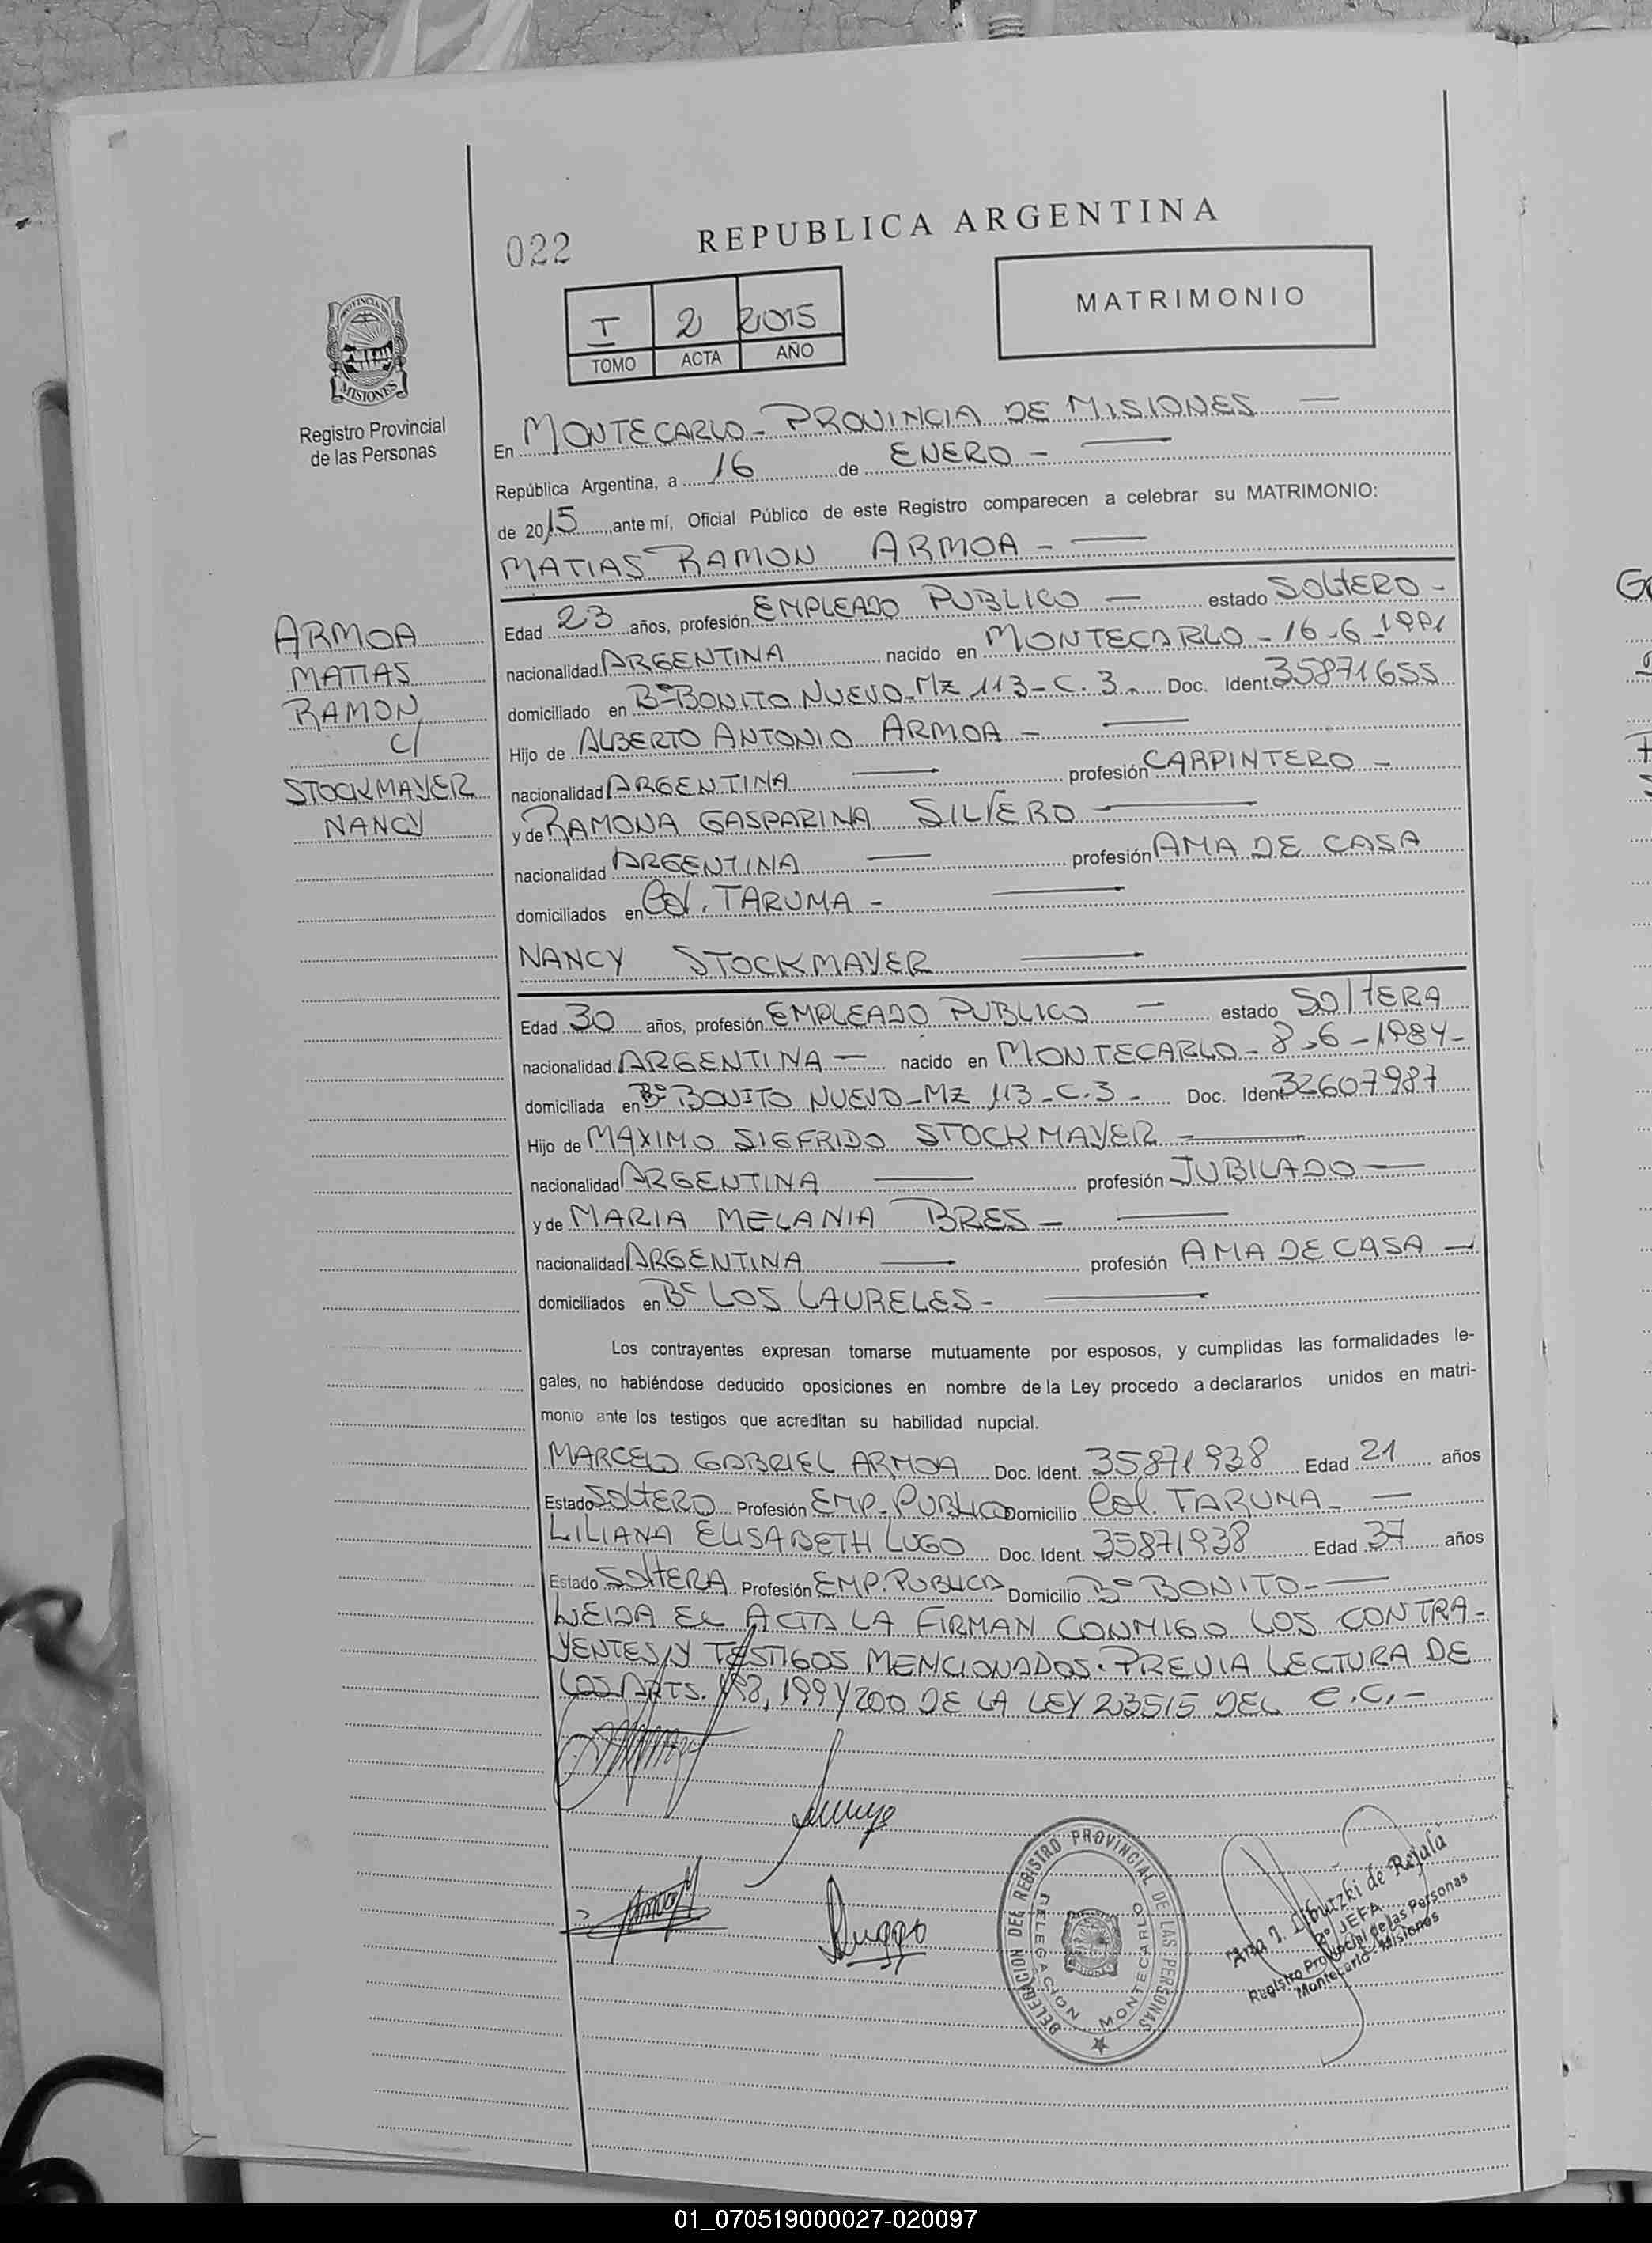 022
REPUBLICA ARGENTINA
I 2 2015
TOMO ACTA AÑO
MATRIMONIO
PROVINCIA
MISIONES
Registro Provincial
de las Personas
En MONTECARLO - PROVINCIA DE MISIONES —
República Argentina, a 16 de ENERO - —
de 2015, ante mí, Oficial Público de este Registro comparecen a celebrar su MATRIMONIO:
MATIAS RAMON ARMOA - —
ARMOA
MATIAS
RAMON
C/
STOCKMAYER
NANCY
Edad 23 años, profesión EMPLEADO PUBLICO — estado SOLTERO -
nacionalidad ARGENTINA nacido en MONTECARLO - 16-6-1991
domiciliado en B° BONITO NUEVO - Mz 113 - C. 3 - Doc. Ident. 35871655
Hijo de ALBERTO ANTONIO ARMOA - —
nacionalidad ARGENTINA — profesión CARPINTERO -
y de RAMONA GASPARINA SILVERO —
nacionalidad ARGENTINA — profesión AMA DE CASA
domiciliados en Col. TARUMA - —
NANCY STOCKMAYER —
Edad 30 años, profesión EMPLEADO PUBLICO — estado SOLTERA
nacionalidad ARGENTINA — nacido en MONTECARLO - 8-6-1984-
domiciliada en B° BONITO NUEVO - Mz 113 - C. 3 - Doc. Ident 32607987
Hijo de MAXIMO SIGFRIDO STOCKMAYER - —
nacionalidad ARGENTINA — profesión JUBILADO —
y de MARIA MELANIA BRES - —
nacionalidad ARGENTINA — profesión AMA DE CASA —
domiciliados en B° LOS LAURELES - —
Los contrayentes expresan tomarse mutuamente por esposos, y cumplidas las formalidades le-
gales, no habiéndose deducido oposiciones en nombre de la Ley procedo a declararlos unidos en matri-
monio ante los testigos que acreditan su habilidad nupcial.
MARCELO GABRIEL ARMOA Doc. Ident. 35871938 Edad 21 años
Estado SOLTERO Profesión EMP. PUBLICO Domicilio Col. TARUMA - —
LILIANA ELISABETH LUGO Doc. Ident. 35871938 Edad 37 años
Estado SOLTERA Profesión EMP. PUBLICA Domicilio B° BONITO - —
LEIDA EL ACTA LA FIRMAN CONMIGO LOS CONTRA-
YENTES Y TESTIGOS MENCIONADOS. PREVIA LECTURA DE
LOS ARTS. 198, 199 Y 200 DE LA LEY 23515 DEL C.C. -
DELEGACION DEL REGISTRO PROVINCIAL DE LAS PERSONAS
DELEGACION MONTECARLO
2° JEFA
Registro Provincial de las Personas
Montecarlo - Misiones
01_070519000027-020097